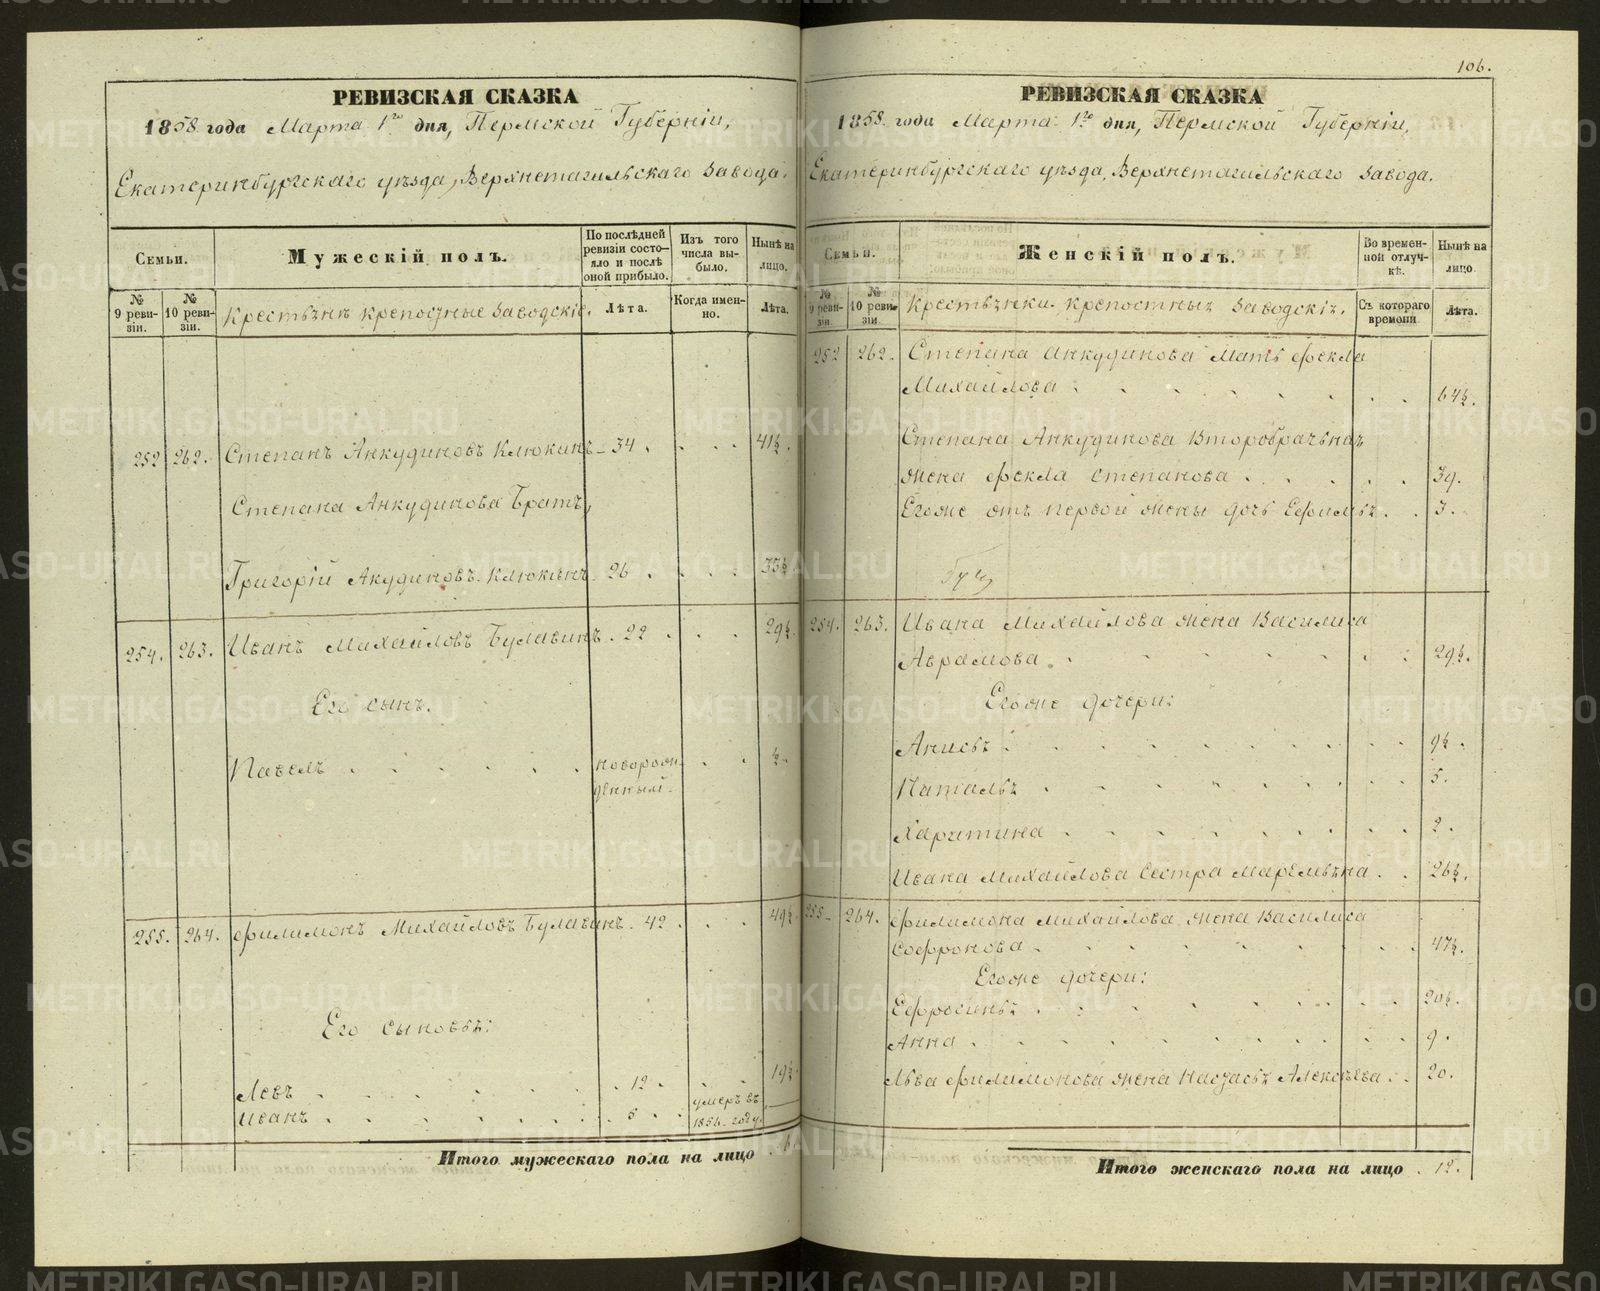 РЕВИЗСКАЯ СКАЗКА
1858. года Марта 1го дня, Пермской Губерніи,
Екатеринбургскаго уѣзда, Верхнетагильскаго завода.
Семьи.
Мужескій полъ.
По послѣдней ревизіи состояло и послѣ оной прибыло.
Изъ того числа выбыло.
Нынѣ на лицо.
№ 9 ревизіи.
№ 10 ревизіи.
Крестьянъ крепосные заводскіе.
Лѣта.
Когда именно.
Лѣта.
252 262. Степанъ Анкудиновъ Клюкинъ 34. 41½.
Степана Анкудинова Братъ,
Григорій Акудиновъ Клюкинъ. 26. 33½
254. 263. Иванъ Михайловъ Булавинъ. 22 29½.
Его сынъ.
Павелъ новорож
денный. ½.
255. 264. Филимонъ Михайловъ Булавинъ. 42. 49½
Его сыновья:
Левъ 12. 19½
Иванъ 5. умеръ въ
1856 году.
Итого мужескаго пола на лицо 6
106.
РЕВИЗСКАЯ СКАЗКА
1858. года Марта 1го дня, Пермской Губерніи,
Екатеринбургскаго уѣзда, Верхнетагильскаго завода.
Семьи.
Женскій полъ.
Во временной отлучкѣ.
Нынѣ на лицо.
№ 9 ревизіи.
№ 10 ревизіи.
Крестьянки крепостныя заводскія.
Съ котораго времени
Лѣта.
252 262. Степана Анкудинова мать Фекла
Михайлова 64½.
Степана Анкудинова второбрачная
жена Фекла Степанова 39.
Егоже отъ первой жены дочь Ефимья. 3.
254. 263. Ивана Михайлова жена Василиса
Аврамова. 29½.
Егоже дочери:
Анисья 9½.
Наталья 5.
Харитина 2.
Ивана Михайлова сестра Маремьяна. 26½.
255 264. Филимона Михайлова жена Василиса
Софронова 47½.
Егоже дочери:
Ефросинья 20½.
Анна 9.
Льва Филимонова жена Настасья Алексѣева. 20.
Итого женскаго пола на лицо 12.
METRIKI.GASO-URAL.RU